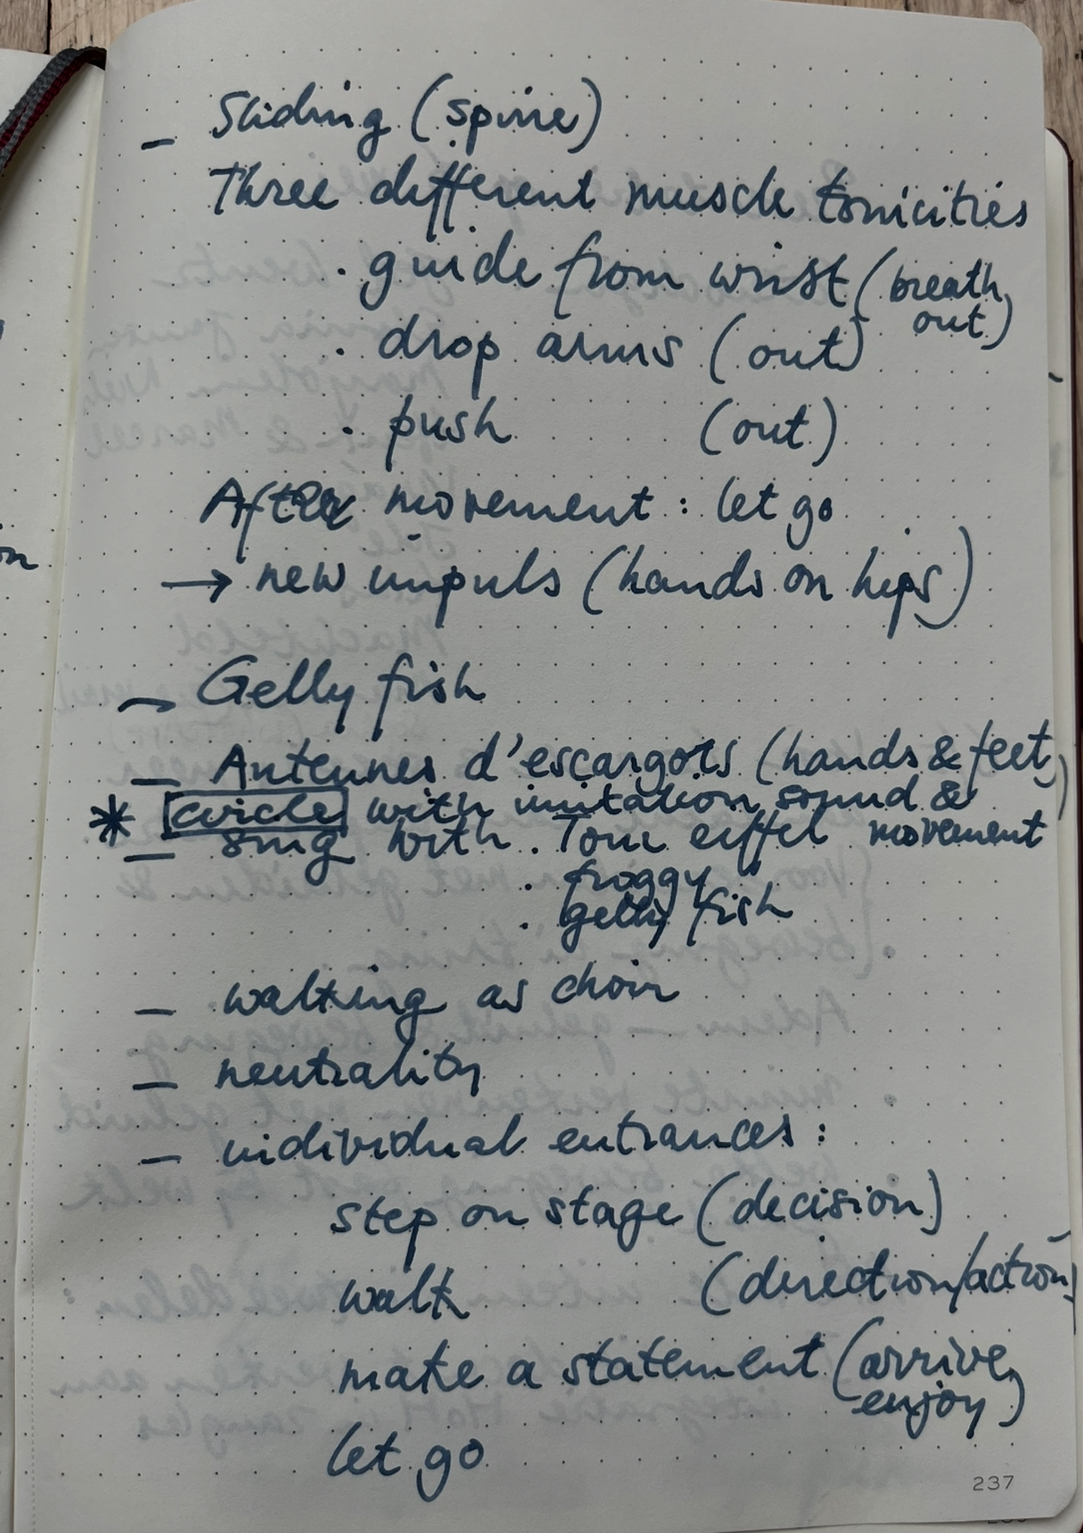 – Sliding (spine)
Three different muscle tonicities
· guide from wrist (breath out)
· drop arms (out)
· push (out)
After movement : let go
→ new impuls (hands on hips)
– Gelly fish
– Antennes d'escargots (hands & feet)
* circle with imitation sound & movement
– sing with · Tour eiffel
· froggy
· gelly fish
– walking as choir
– neutrality
– individual entrances :
step on stage (decision)
walk (direction/action)
make a statement (arrive, enjoy)
let go
237